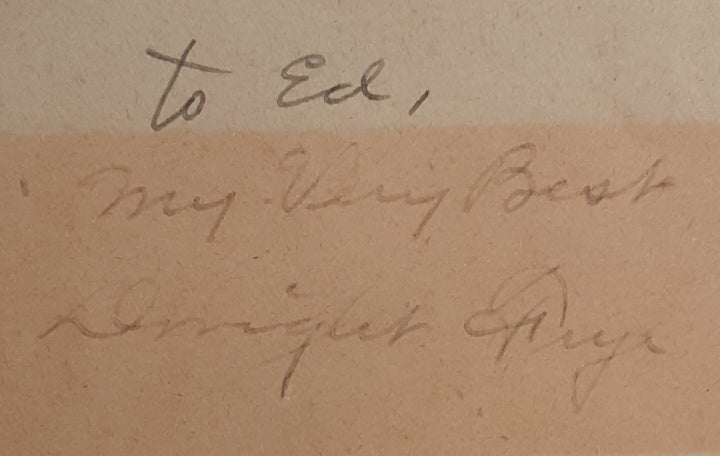 to Ed,
My Very Best
Dwight Frye